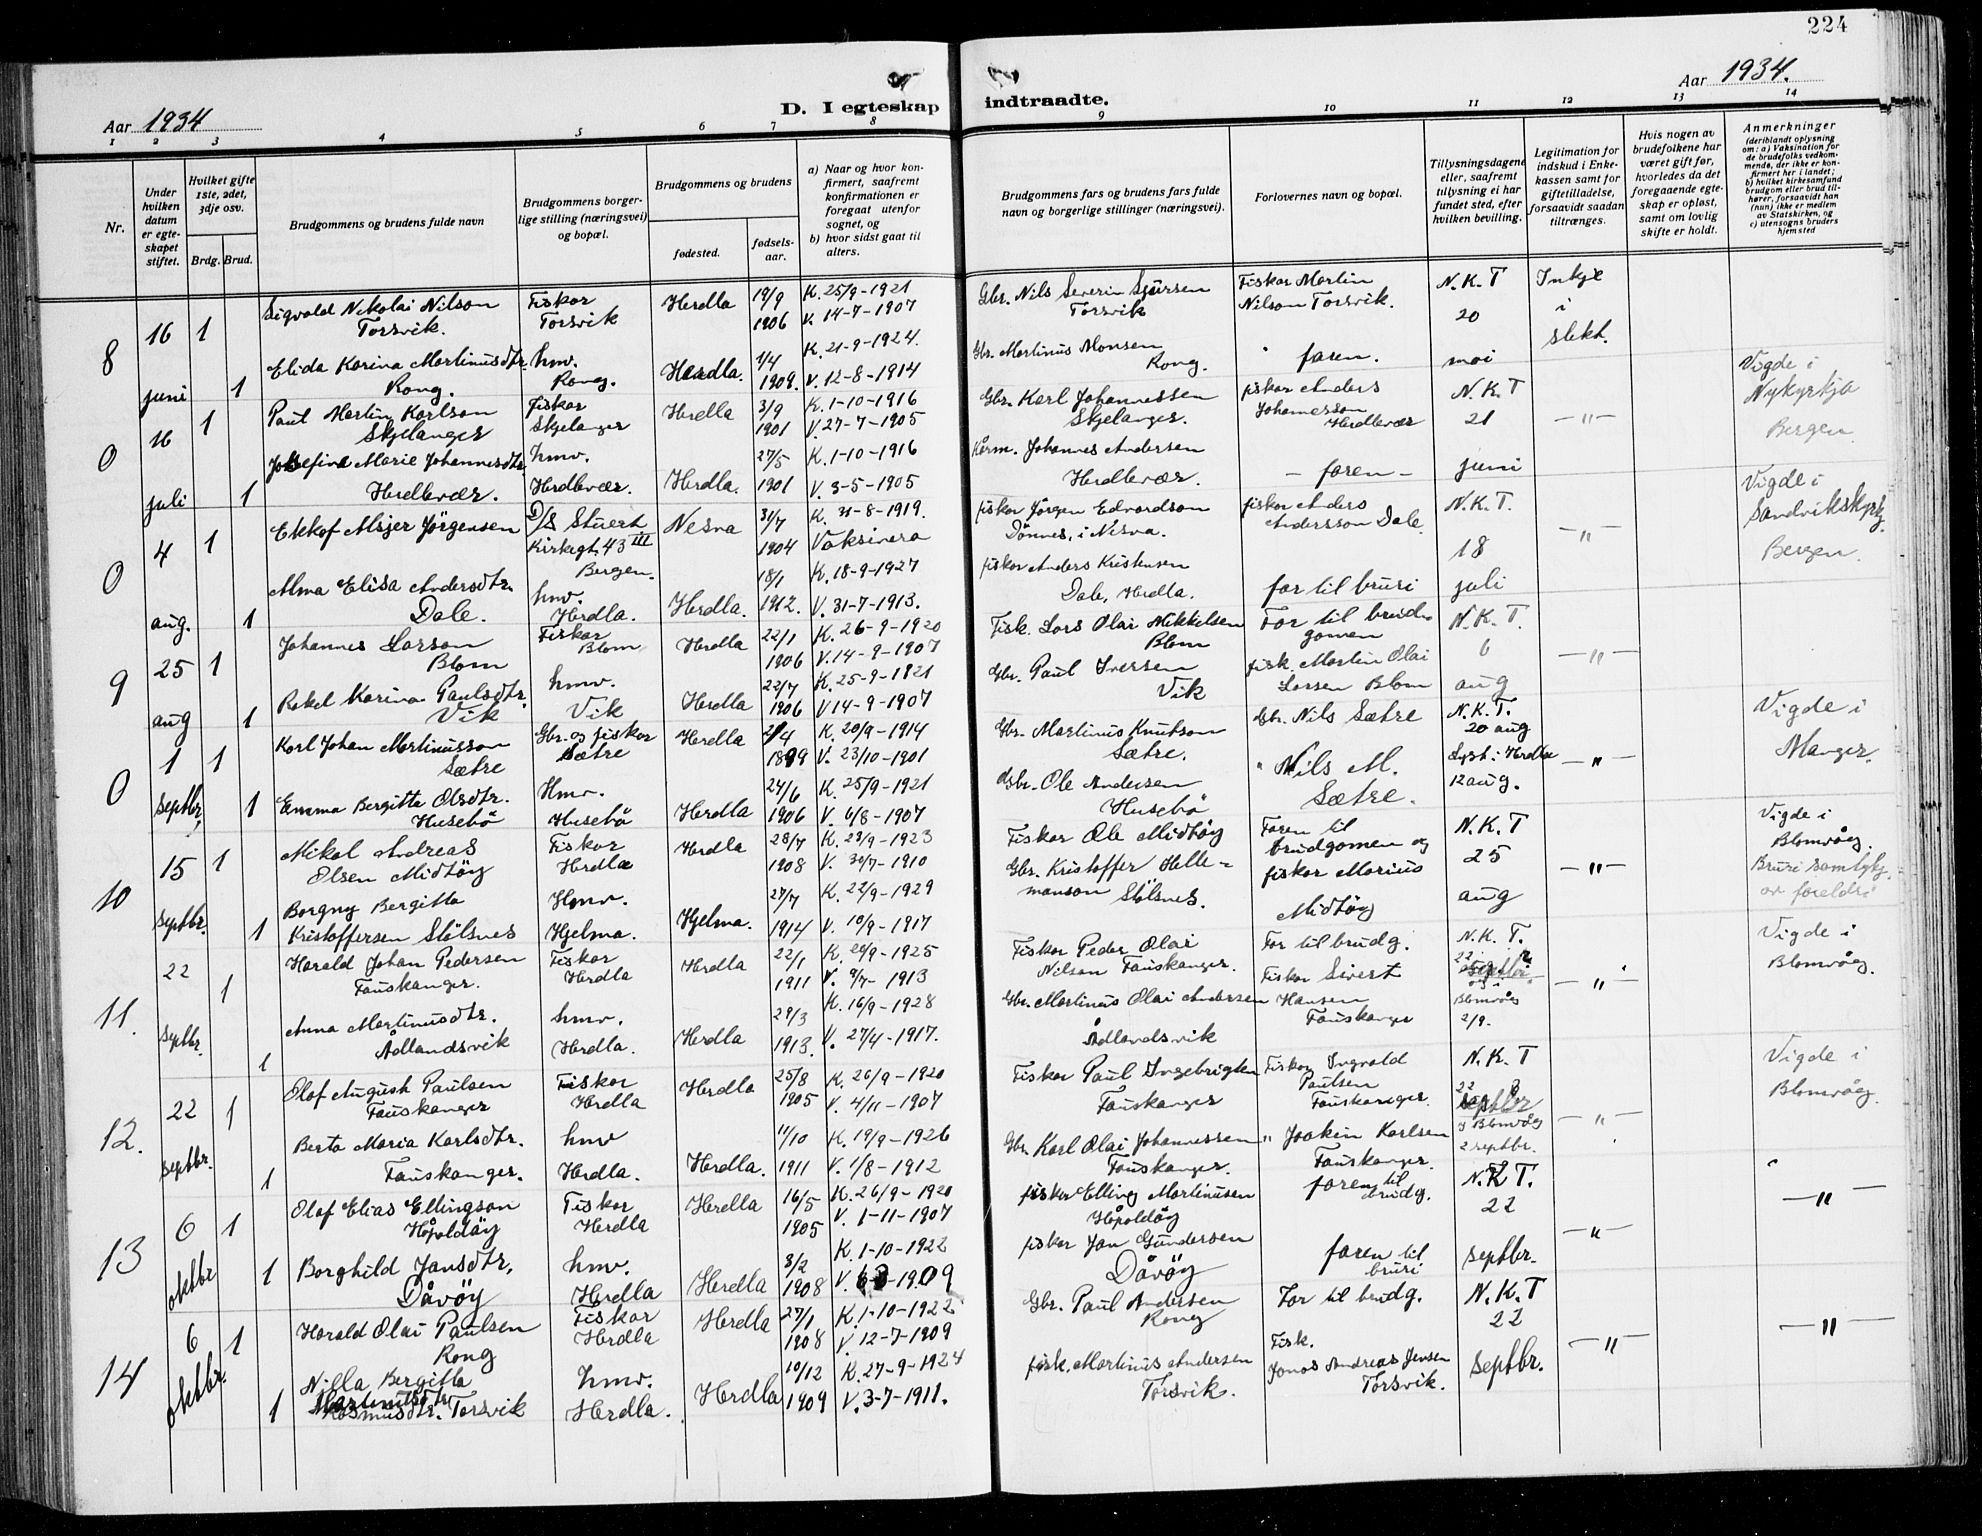 224
Aar 1934.
D. I egteskap indtraadte.
Aar 1934.
1 2 3 4 5 6 7 8 9 10 11 12 13 14
Nr.
Under hvilken datum er egteskapet stiftet.
Hvilket gifte 1ste, 2det, 3dje osv.
Brdg. Brud.
Brudgommens og brudens fulde navn
Brudgommens borgerlige stilling (næringsvei) og bopæl.
Brudgommens og brudens
fødested.
fødselsaar.
a) Naar og hvor konfirmert, saafremt konfirmationen er foregaat utenfor sognet, og
b) hvor sidst gaat til alters.
Brudgommens fars og brudens fars fulde navn og borgerlige stillinger (næringsvei).
Forlovernes navn og bopæl.
Tillysningsdagene eller, saafremt tillysning ei har fundet sted, efter hvilken bevilling.
Legitimation for indskud i Enkekassen samt for giftetilladelse, forsaavidt saadan tiltrænges.
Hvis nogen av brudefolkene har været gift før, hvorledes da det foregaaende egteskap er opløst, samt om lovlig skifte er holdt.
Anmerkninger
(deriblandt oplysning om: a) Vaksination for de brudefolks vedkommende, der ikke er konfirmert her i landet; b) hvilket kirkesamfund brudgom eller brud tilhører, forsaavidt han (hun) ikke er medlem av Statskirken, og c) utensogns bruders hjemsted
8 16 juni 1 Sigvald Nikolai Nilson Torsvik. Fiskar Torsvik Herdla 19/9 1906 K. 25/9-1921 V. 14-7-1907 Gbr. Nils Severin Sjursen Torsvik Fiskar Martin Nilson Torsvik. N.K.T 20 mai Inkje i slekt.
1 Elida Karina Martinusdtr. Rong. hmv. Rong. Herdla. 1/4 1909. K. 21-9-1924. V. 12-8-1914 Gbr. Martinus Monsen Rong. " faren.
0 16 juli 1 Paul Martin Karlson Skjelanger Fiskar Skjelanger Herdla 3/9 1901 K. 1-10-1916 V. 27-7-1905 Gbr. Karl Johannessen Skjelanger. fiskar Anders Johannesson Herdlevær N.K.T 21 juni -"- Vigde i Nykyrkja Bergen
1 Josefine Marie Johannesdtr. Herdlevær. hmv. Herdlevær. Herdla. 27/5 1901 K. 1-10-1916 V. 3-5-1905 Johannes Andersen Herdlevær. - faren -
0 4 aug. 1 Alsjer Jörgensen D/S Stuert Kirkegt. 43 III Bergen. Nesna 31/7 1904 K. 31-8-1919. Vaksinera fiskar Jörgen Edvardson Dönnes, i Nesna. fiskar Anders Andersson Dale. N.K.T. 18 juli -"- Vigde i Sandvikskyrkj. Bergen.
1 Alma Elisa Andersdtr. Dale. hmv. Herdla. Herdla. 18/1 1912. K. 18-9-1927 V. 31-7-1913. fiskar Anders Kristensen Dale, Herdla. far til bruri
9 25 aug 1 Johannes Larson Blom Fiskar Blom Herdla 22/1 1906 K. 26-9-1920 V. 14-9-1907 Fisk. Lars Olai Mikkelsen Blom Far til brudgomen N.K.T. 6 aug -"-
1 Rakel Karina Paulsdtr. Vik hmv. Vik Herdla 22/7 1906 K. 25-9-1921 V 14-9-1907 Gbr. Paul Iversen Vik fisk. Martin Olai Larsen Blom
0 1 septbr, 1 Karl Johan Martinusson Sætre Gbr. og fiskar Sætre Herdla 1899 K. 20/9-1914 V. 23/10-1901 Gbr. Martinus Knutson Sætre. Gbr. Nils Sætre N.K.T. 20 aug Lyst i Herdla 12 aug. -"- Vigde i Manger.
1 Emma Bergitta Olsdtr. Husebö Hmv. Husebö Herdla 24/6 1906 K. 25/9-1921 V. 6/8-1907 Gbr. Ole Andersen Husebö " Nils M. Sætre.
10 15 septbr. 1 Mikal Andreas Olsen Midtöy Fiskar Herdla Herdla 28/7 1908 K. 23/9-1923 V. 30/7-1910 Fiskar Ole Midtöy Faren til brudgomen og fiskar Marius Midtöy N.K.T 25 aug -"- Vigde i Blomvåg. Bruri samtykj. av foreldri
1 Borgny Bergitta Kristoffersen Stölsnes Hmv. Hjelma. Hjelma. 27/7 1914 K. 22/9-1929 V. 10/9-1917 Gbr. Kristoffer Hellemanson Stölsnes.
11. 22 septbr. 1 Harald Johan Pedersen Fauskanger. Fiskar Herdla Herdla 22/1 1911 K. 20/9-1925 V. 9/7-1913 Fiskar Peder Olai Nilson Fauskanger. Far til brudg. N.K.T. Blomvåg 2/9. -"- Vigde i Blomvåg.
1 Anna Martinusdtr. Ådlandsvik hmv. Herdla. Herdla 29/3 1913. K. 16/9-1928 V. 27/4-1917. Gbr. Martinus Olai Andersen Ådlandsvik Fiskar Sivert Hansen Fauskanger
12. 22 septbr. 1 Olaf August Paulsen Fauskanger Fiskar Herdla Herdla 25/8 1905 K. 26/9-1920 V. 4/11-1907 Fiskar Paul Ingebrigtsen Fauskanger Fiskar Ingvald Paulsen Fauskanger. N.K.T Blomvåg 2 septbr. -"- Vigde i Blomvåg.
1 Berta Maria Karlsdtr. Fauskanger. hmv Herdla. Herdla. 11/10 1911 K. 19/9-1926 V. 1/8-1912 Gbr. Karl Olai Johannessen Fauskanger. " Joakim Karlsen Fauskanger.
13 6 oktbr 1 Olaf Elias Ellingson Håpoldöy Fiskar Herdla Herdla 16/5 1905 K. 26/9-1920 V. 1-11-1907 fiskar Elling Martinusen Håpoldöy faren til brudg. N.K.T. 22 septbr. -"- -"-
1 Borghild Jansdtr, Dåvöy hmv. Herdla Herdla 3/2 1908 K. 1-10-1922 fiskar Jan Gundersen Dåvöy faren til bruri
14 6 oktbr. 1 Harald Olai Paulsen Rong Fiskar Herdla Herdla 27/1 1908 K. 1-10-1922 V. 12-7-1909 Gbr. Paul Andersen Rong Far til brudg. N.K.T 22 septbr. -"- -"-
1 Nilla Bergitta Martinusdtr. Torsvik hmv. Herdla. Herdla 10/12 1909 K. 27-9-1924 V. 3-7-1911. fisk. Martinus Andersen Torsvik. Fisk. Jonas Andreas Jensen Torsvik.